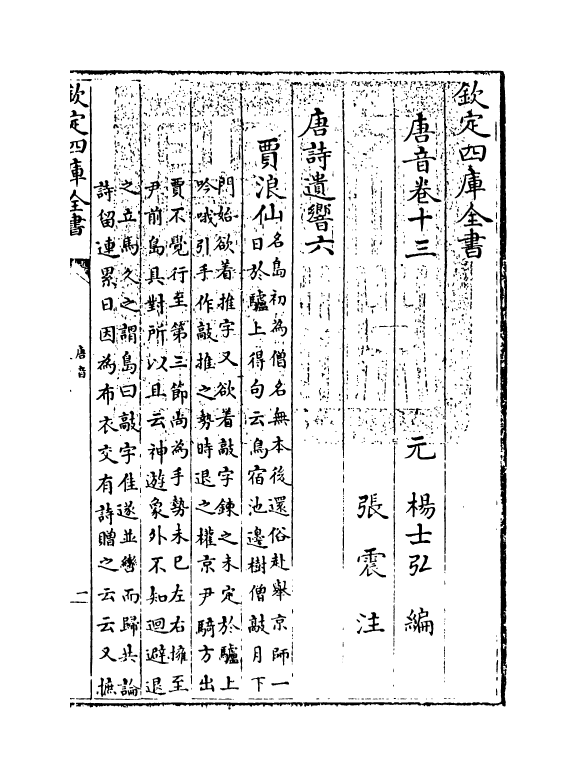 欽定四庫全書
唐音卷十三
元 楊士弘 編
張震 注
唐詩遺響六
賈浪仙
名島初為僧名無本後還俗赴舉京師一
日於驢上得句云鳥宿池邊樹僧敲月下
門始欲着推字又欲着敲字鍊之未定於驢上
吟哦引手作敲推之勢時退之權京尹騎方出
賈不覺行至第三節尚為手勢未已左右擁至
尹前島具對所以且云神遊象外不知迴避退
之立馬久之謂島曰敲字佳遂並轡而歸共論
詩留連累日因為布衣交有詩贈之云云又摭
欽定四庫全書
唐音
一